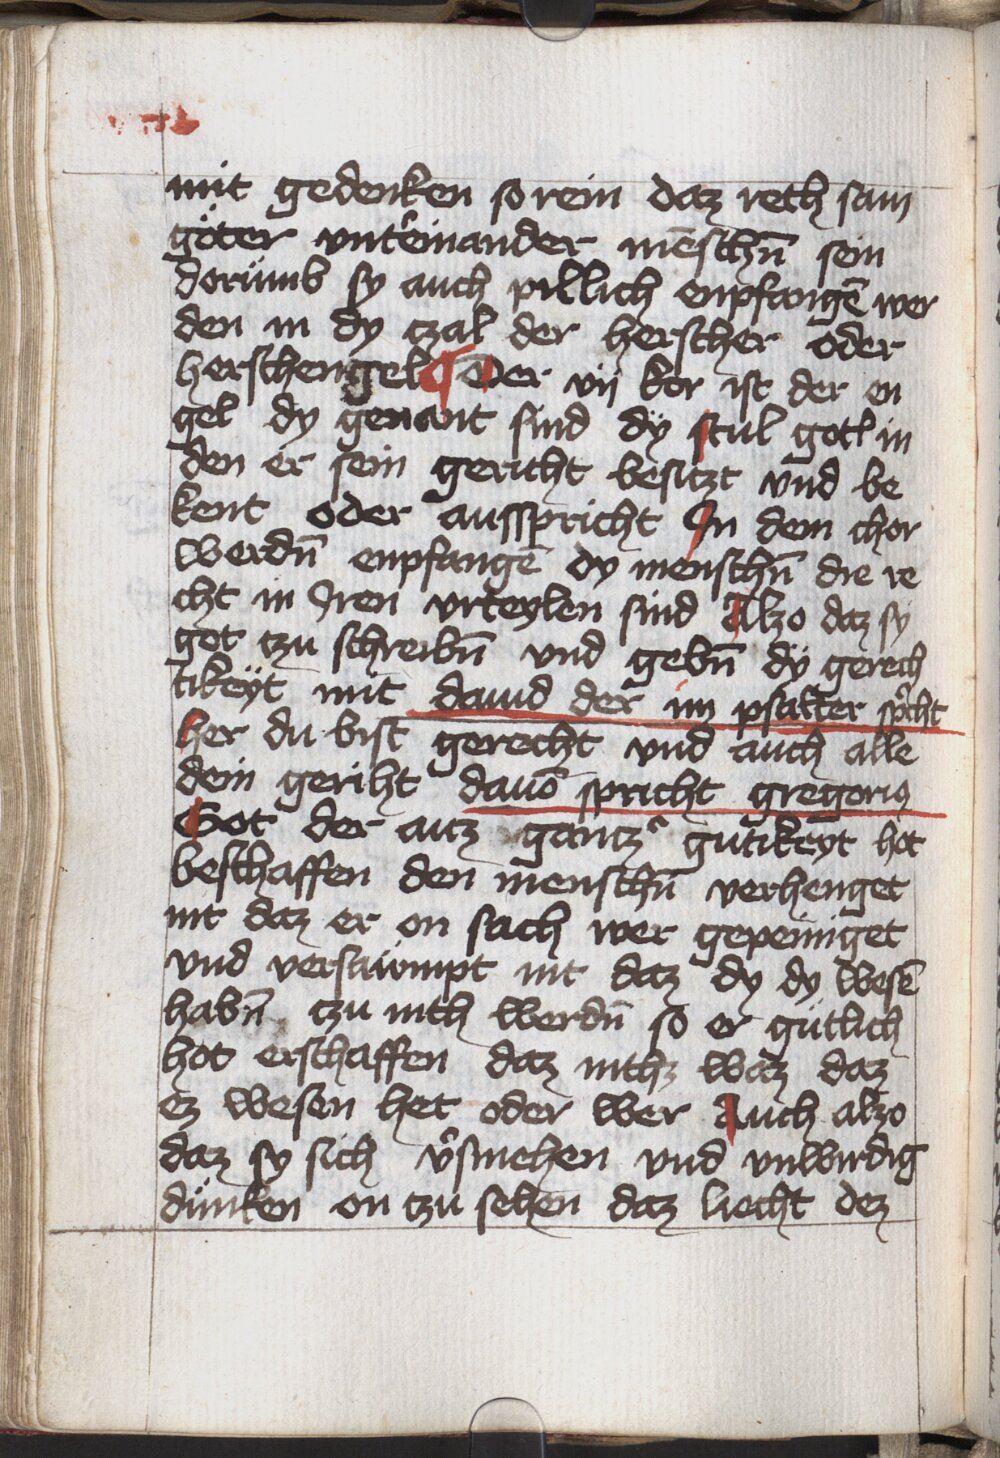 mit gedenken so rein daz reth sam
göter vnt'einander mēschn̄ sein
dorumb sy auch pillich enpfangē wer
den in dy czal der herscher oder
herschengel ¶ Der vij kor ist der en
gel dy genant sind dÿ stul gotl in
den er sein gericht besitzt vnd be
kent oder ausspricht In dem chor
werdn̄ enpfangē dy menschn̄ die re
cht in Iren vrteylen sind Alzo daz sy
got czu schreibn̄ vnd gebn̄ dÿ gerech
tikeÿt mit dauid der im psalter sp'cht
her du bist gerecht vnd auch alle
dein geriht dauō spricht gregorius
Got der aitz gantz' gutikeyt hot
beschaffen den menschn̄ verhenget
nit daz er on sach wer gepeiniget
vnd versawmpt nit daz dy dy wesē
habn̄ czu nith werdn̄ so er gütlich
hot erschaffen daz nithz waz daz
ez wesen het oder wer Auch alzo
daz sy sich v'smehen vnd vnwirdig
dünken on czu sehen daz liecht dez